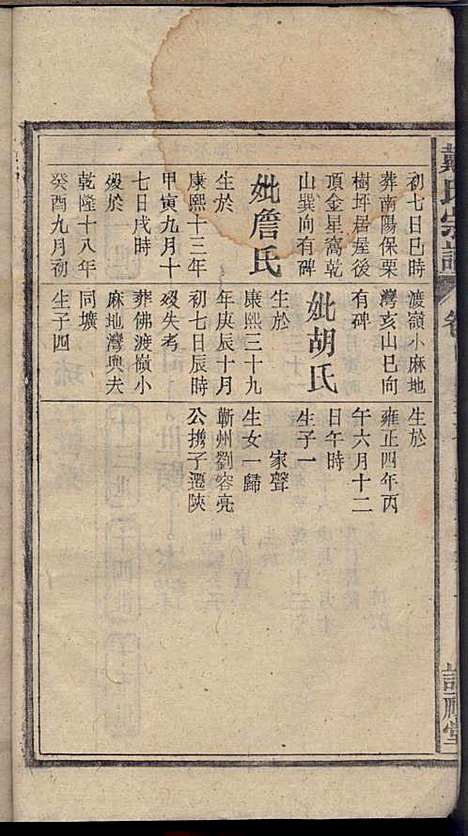 戴氏宗譜
卷
詒禮堂
初七日巳時
葬南陽保栗
樹坪居屋後
頂金星窩乾
山巽向有碑
妣詹氏
生於
康熙十三年
甲寅九月十
七日戌時
歿於
乾隆十八年
癸酉九月初
渡嶺小麻地
灣亥山巳向
有碑
妣胡氏
生於
康熙三十九
年庚辰十月
初七日辰時
歿失考
葬佛渡嶺小
麻地灣與夫
同壙
生子四
生於
雍正四年丙
午六月十二
日午時
生子一
家聲
生女一歸
蘄州劉容亮
公携子遷陝